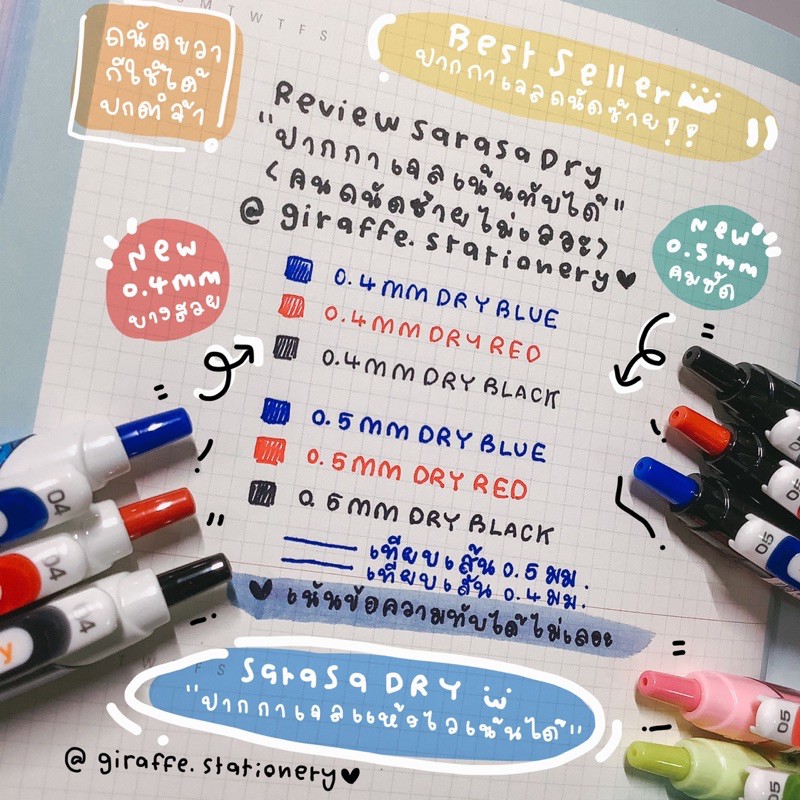 M T W T F S
ถนัดขวา
ก็ใช้ได้
ปกติจ้า
Best Seller
ปากกาเจลถนัดซ้าย!!
Review Sarasa Dry
"ปากกาเจลเน้นทับได้"
(คนถนัดซ้ายไม่เลอะ)
@ giraffe.stationery
New
0.4mm
บางสวย
New
0.5mm
คมชัด
0.4MM DRY BLUE
0.4MM DRY RED
0.4MM DRY BLACK
0.5MM DRY BLUE
0.5MM DRY RED
0.5MM DRY BLACK
เทียบเส้น 0.5 มม.
เทียบเส้น 0.4 มม.
เน้นข้อความทับได้ไม่เลอะ
04
04
04
05
05
05
Sarasa DRY
"ปากกาเจลแห้งไวเน้นได้"
05
05
@ giraffe.stationery